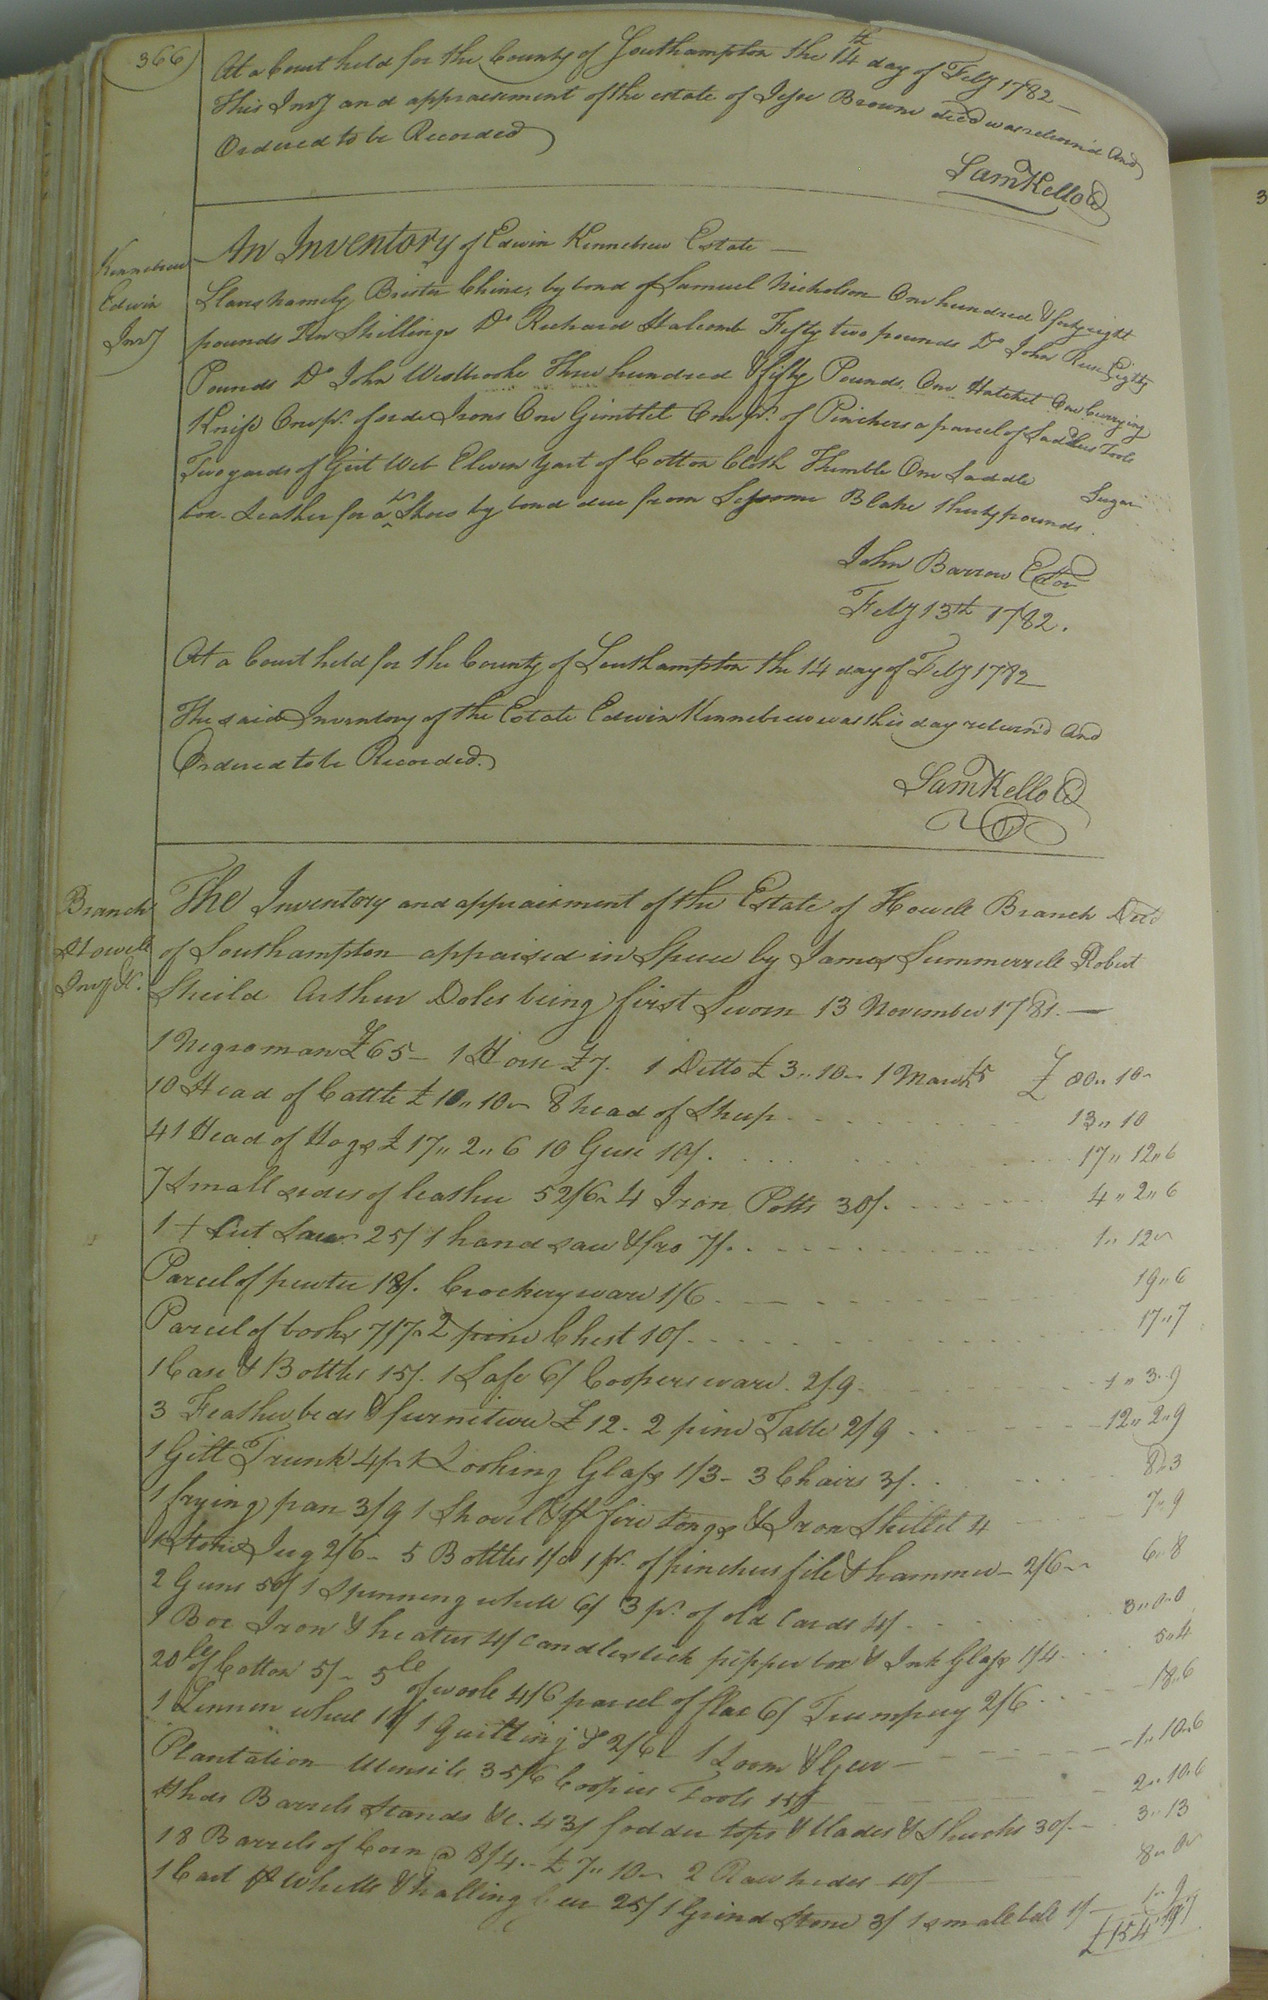 366
At a Court held for the County of Southampton the 14th day of Feby 1782 —
This Invy and appraisment of the estate of Jesse Browne decd was return'd And
Ordered to be Recorded
Sam Kello Cl
Kennebrew
Edwin
Invy
An Inventory of Edwin Kennebrew Estate —
Slaves Namely Brister Chine, by bond of Samuel Nicholson One hundred & forty eight
pounds Ten Shillings Do Richard Halcomb Fifty two pounds Do John Eighty
Pounds Do John Westbrooke Three hundred & fifty Pounds. One Hatchet One Currying
Knife One pr. of Irons One Gimblet One pr. of Pinchers a parcel of Sadlers Tools
Two yards of Girt Web Eleven yart of Cotton Cloth Thimble One Saddle Sugar
box. Leather for a pr Shoes by bond due from Blake thirty pounds.
John Barrow Exor
Feby 13th 1782.
At a Court held for the County of Southampton the 14 day of Feby 1782
The said Inventory of the Estate Edwin Kennebrew was this day return'd And
Ordered to be Recorded.
Sam Kello Cl
Branch
Howell
Invy &c.
The Inventory and appraisment of the Estate of Howell Branch Decd
of Southampton appraised in Specie by James Summerrell Robert
Sheild Arthur Doles being first Sworn 13 November 1781. —
1 Negro man £65 - 1 Horse £7. 1 Ditto £3,,10 - 1 Mare £5 £ 80,, 10 -
10 Head of Cattle £10,,10 - 8 head of Sheep 13,, 10
41 Head of Hogs £17,,2,,6 10 Geese 10/. 17,, 12,, 6
7 Small sides of leather 52/6 4 Iron Potts 30/. 4,, 2,, 6
1 + Cut Saw 25/ 1 hand saw & fro 7/. 1,, 12 -
Parcel of pewter 18/. Crockery ware 1/6 19,, 6
Parcel of books 7/7 2 pine Chest 10/. 17,, 7
1 Case & Bottles 15/. 1 Safe 6/ Coopers ware. 2/9. 1,, 3,, 9
3 Feather beds & furniture £12. 2 pine Table 2/9 12,, 2,, 9
1 Gilt Trunk 4/ 1 Looking Glass 1/3 - 3 Chairs 3/. 8,, 3
1 frying pan 3/9 1 Shovel & fire tongs & Iron Skillet 4 7,, 9
1 Stone Jug 2/6 - 5 Bottles 1/8 1 pr. of pinchers file & hammer 2/6 6,, 8
2 Guns 50/ 1 Spinning wheel 6/ 3 pr. of old Cards 4/. 3,, 0,, 0
1 Box Iron & heaters 4/ Candlestick pepper box & Ink Glass 1/4. 5,, 4
20 lb of Cotton 5/ - 5 lb of wool 4/6 parcel of flax 6/ Trumpery 2/6 18,, 6
1 Linnen wheel 1 Quilting 2/6 1 Loom & Geer 1,, 10,, 6
Plantation Utensils 35/6 Coopers Tools 15/ 2,, 10,, 6
Hhds Barrels Stands &c. 43/ fodder tops & blades & Shucks 30/. 3,, 13
18 Barrels of Corn @ 8/4. £7,,10 - 2 Raw hides 10/ 8,, 0 -
1 Cart & Wheels & halling geer 25/ 1 Grind Stone 3/ 1 small bell 1/ 1,, 9
£154,,19,,7